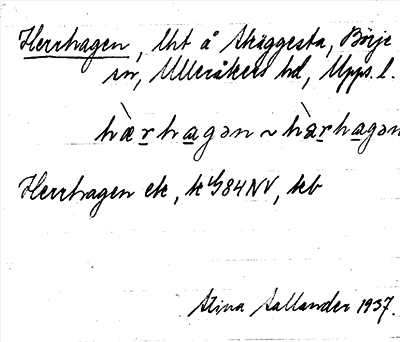 Herrhagen, lht å Skäggesta, Börje
sn, Ulleråkers hd, Upps. l.
hæ̀r̲ha̲gən ~ hàr̲ha̲gən
Herrhagen ek, k 1/984NV, kb
Stina Sallander 1937.